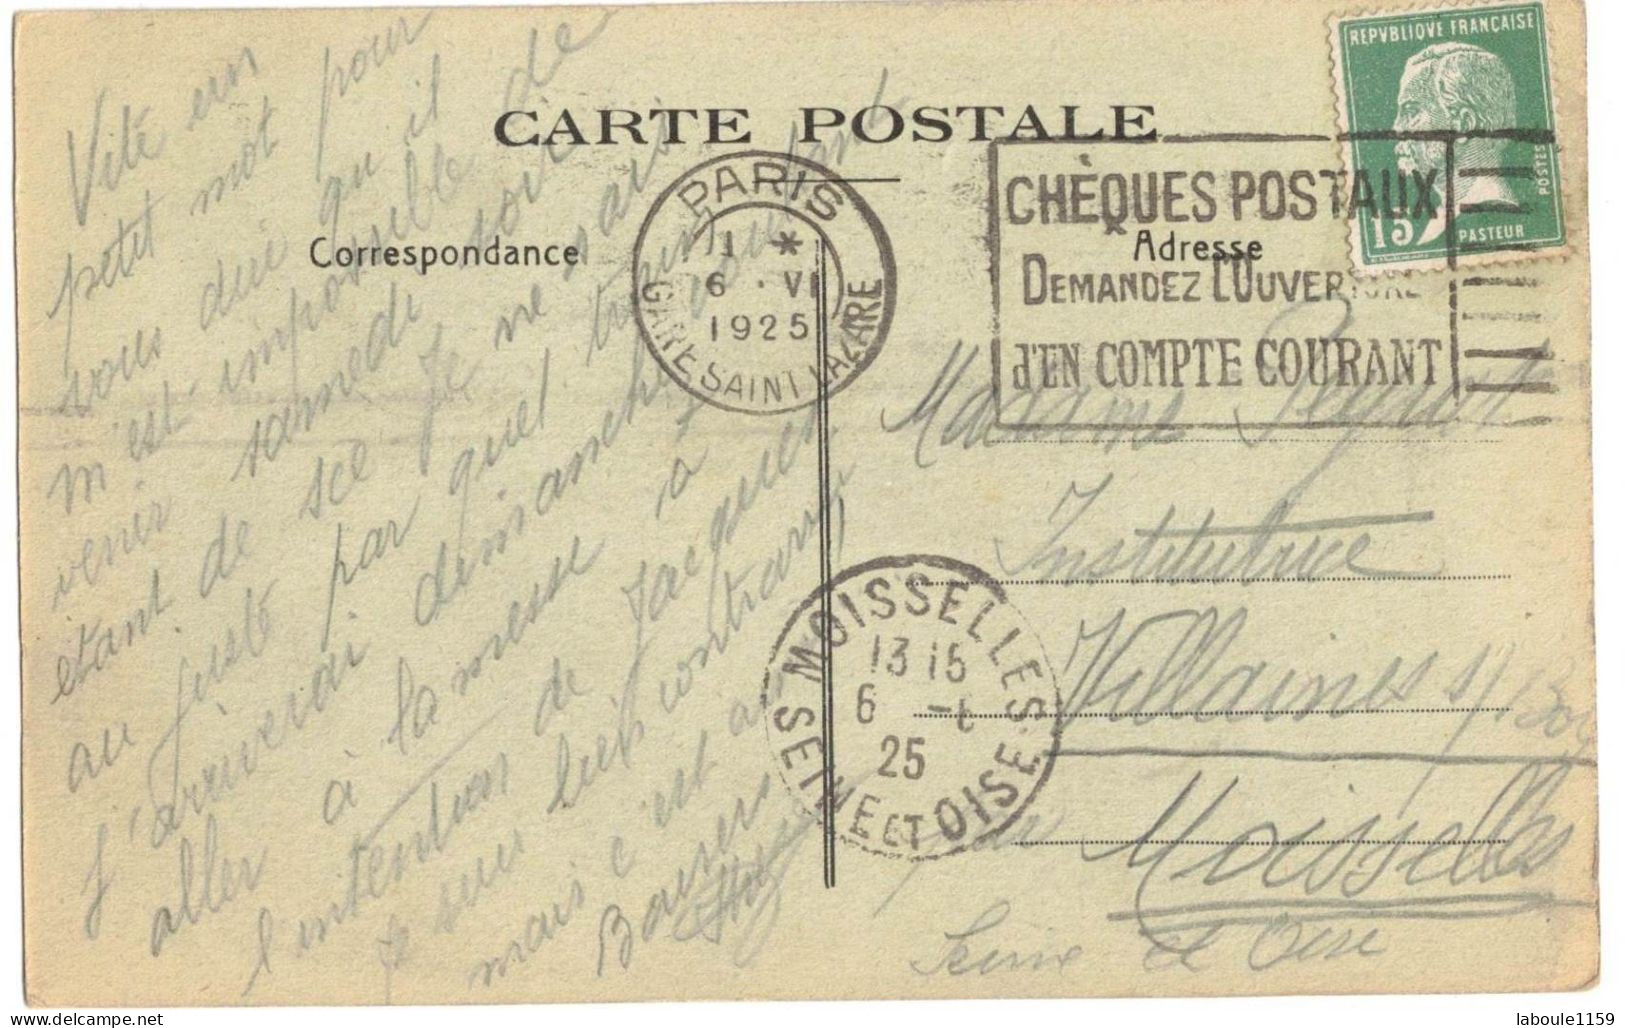 CARTE POSTALE
Correspondance
Adresse
REPVBLIQVE FRANÇAISE
POSTES
15c
PASTEUR
PARIS
11 *
6 · VI
1925
GARE SAINT LAZARE
CHÈQUES POSTAUX
DEMANDEZ L'OUVERTURE
d'UN COMPTE COURANT
MOISSELLES
13 15
6 -6
25
SEINE ET OISE
Vite un
petit mot pour
vous dire qu'il
m'est impossible de
venir samedi soir
étant de sce Je ne sais
au juste par quel train
J'arriverai dimanche voulant
aller à la messe à
l'intention de Jacques
Je suis bien contrarié
mais c'est ainsi
Baisers
Madame
Institutrice
Villaines s/ Bois
par Moisselles
Seine et Oise
laboule1159